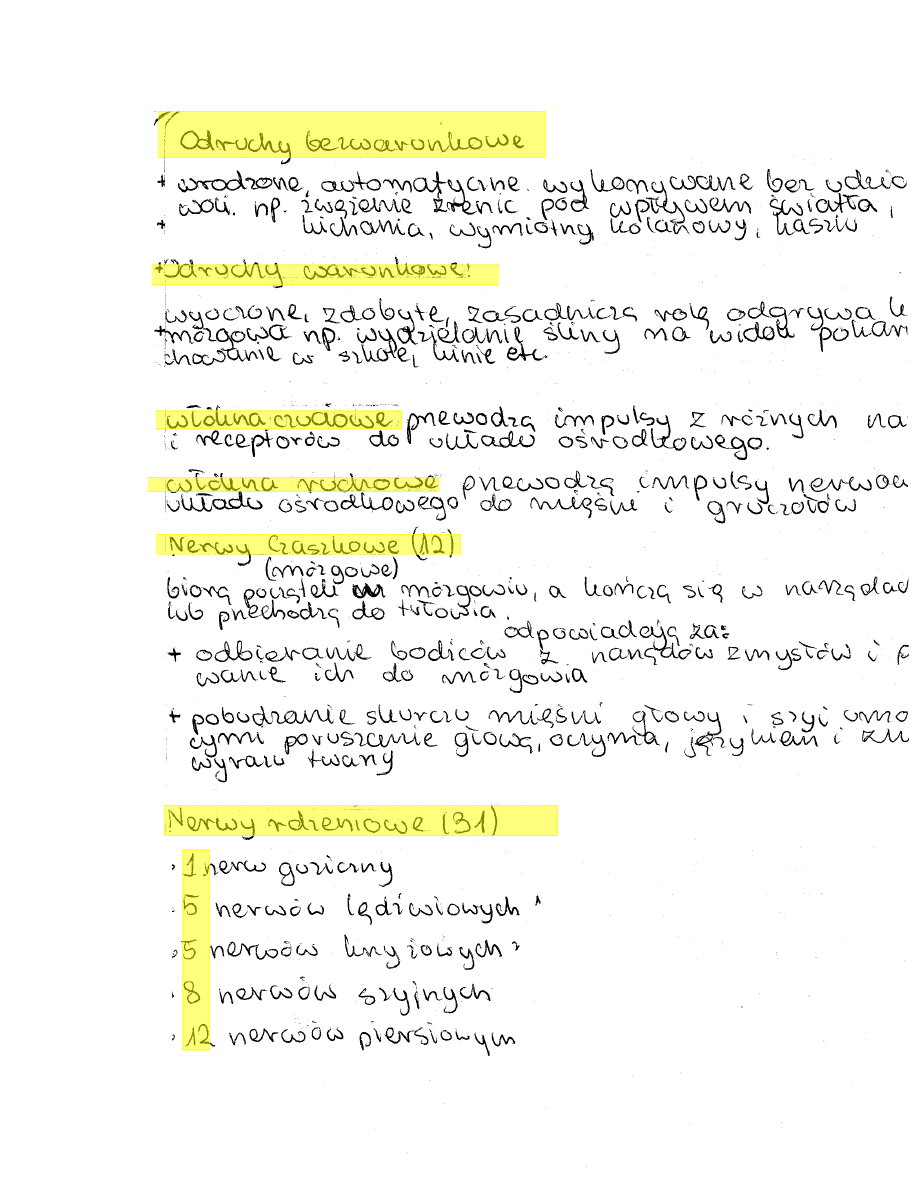 Odruchy bezwarunkowe
+ wrodzone, automatyczne. wykonywane bez udzia
woli. np. zwężenie źrenic pod wpływem światła,
+ kichania, wymiotny, kolanowy, kaszlu
+ Odruchy warunkowe:
wyuczone, zdobyte, zasadniczą rolę odgrywa k
+ mózgowa np. wydzielanie śliny na widok pokar
chowanie w szkole, kinie etc.
włókna czuciowe przewodzą impulsy z różnych na
i receptorów do układu ośrodkowego.
włókna ruchowe przewodzą impulsy nerwow
układu ośrodkowego do mięśni i gruczołów
Nerwy Czaszkowe (12)
(mózgowe)
biorą początek w mózgowiu, a kończą się w narządac
lub przechodzą do tułowia.
odpowiadają za:
+ odbieranie bodźców z narządów zmysłów i p
wanie ich do mózgowia
+ pobudzanie skurczu mięśni głowy i szyi umo
cymi poruszanie głową, oczyma, językiem i zm
wyrazu twarzy
Nerwy rdzeniowe (31)
· 1 nerw guziczny
· 5 nerwów lędźwiowych
· 5 nerwów krzyżowych
· 8 nerwów szyjnych
· 12 nerwów piersiowym